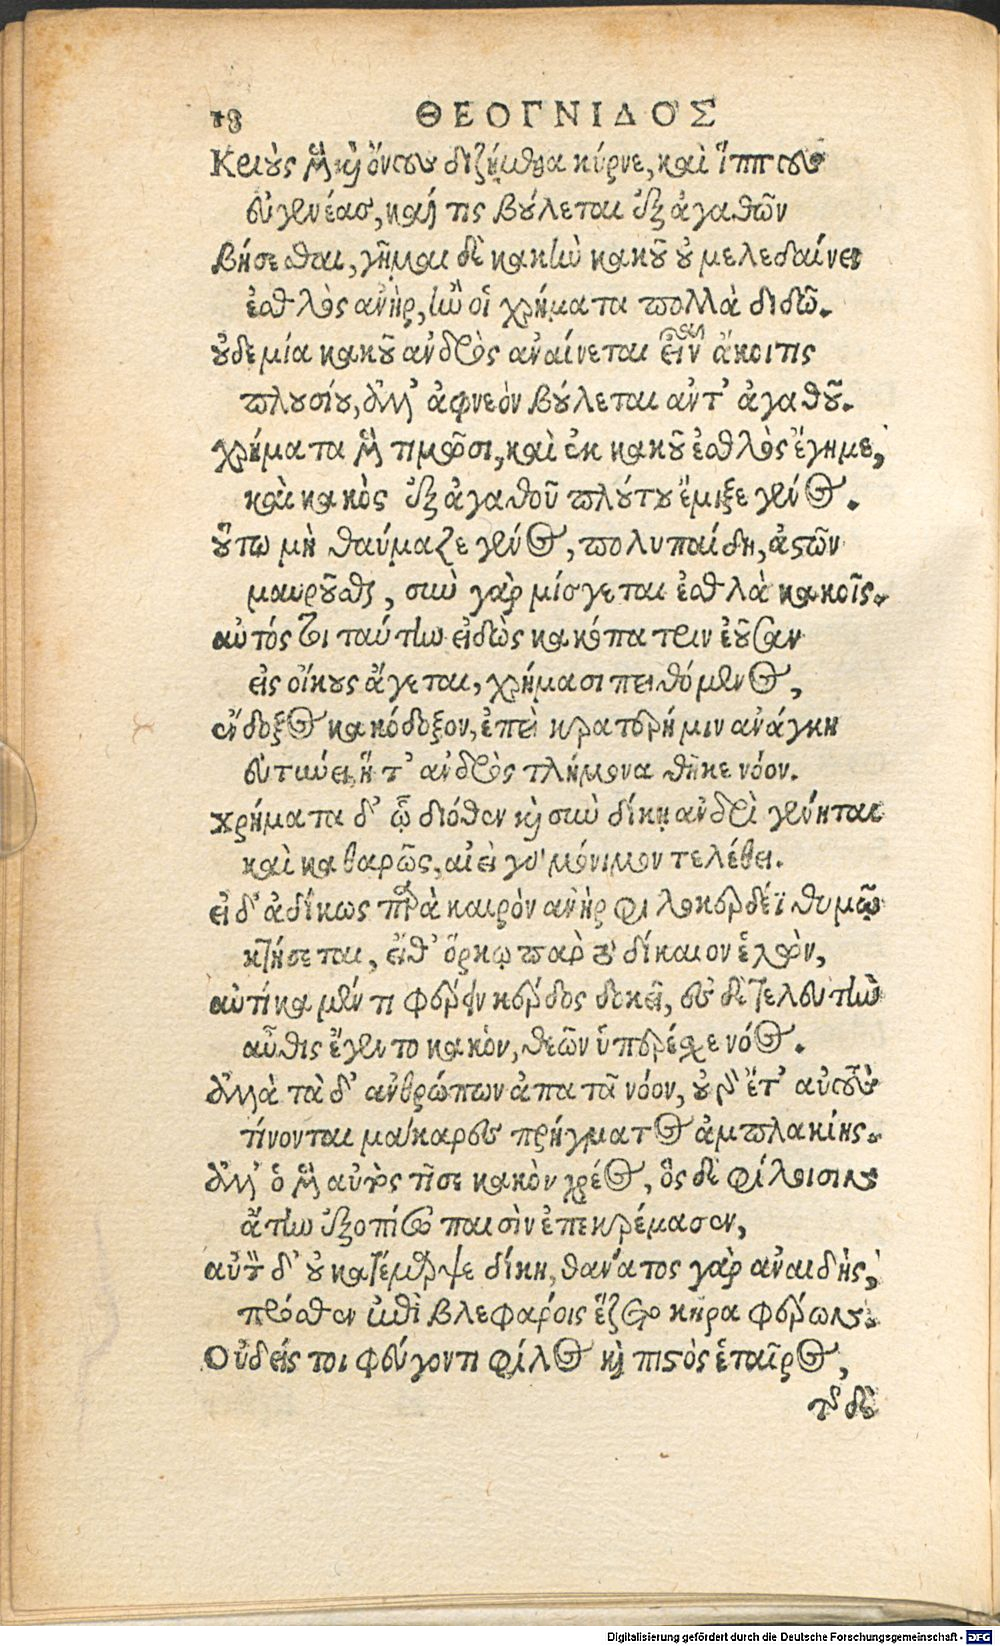 18 ΘΕΟΓΝΙΔΟΣ
Κριοὺς μὲν καὶ ὄνους διζήμεθα κύρνε, καὶ ἵππους
εὐγενέας, καί τις βούλεται ἐξ ἀγαθῶν
βήσεσθαι, γῆμαι δὲ κακὴν κακοῦ οὐ μελεδαίνει
ἐσθλὸς ἀνὴρ, ἢν οἱ χρήματα πολλὰ διδῶ.
οὐδεμία κακοῦ ἀνδρὸς ἀναίνεται εἶναι ἄκοιτις
πλουσίου, ἀλλ' ἀφνεὸν βούλεται ἀντ' ἀγαθοῦ.
χρήματα μὲν τιμῶσι, καὶ ἐκ κακοῦ ἐσθλὸς ἔγημε,
καὶ κακὸς ἐξ ἀγαθοῦ πλούτου ἔμιξε γένος.
οὕτω μὴ θαύμαζε γένος, πολυπαίδη, ἀστῶν
μαυροῦσθαι, σὺν γὰρ μίσγεται ἐσθλὰ κακοῖς.
αὐτός τοι ταύτην εἰδὼς κακόπατριν ἐοῦσαν
εἰς οἴκους ἄγεται, χρήμασι πειθόμενος,
εὔδοξος κακόδοξον, ἐπεὶ κρατερή μιν ἀνάγκη
ἐντύνει, ἥ τ' ἀνδρὸς τλήμονα θῆκε νόον.
χρήματα δ' ᾧ διόθεν καὶ σὺν δίκῃ ἀνδρὶ γένηται
καὶ καθαρῶς, αἰεὶ γε μόνιμον τελέθει.
εἰ δ' ἀδίκως παρὰ καιρὸν ἀνὴρ φιλοκερδέϊ θυμῷ
κτήσεται, εἴθ' ὅρκῳ παρ τὸ δίκαιον ἑλὼν,
αὐτίκα μέν τι φέρειν κέρδος δοκεῖ, ἐς δὲ τελευτὴν
αὖθις ἔγεντο κακὸν, θεῶν ὑπερέσχε νόος.
ἀλλὰ τὰ δ' ἀνθρώπων ἀπατᾶ νόον, οὐ γὰρ ἔτ' αὐτοὺς
τίνονται μάκαρες πρήγματος ἀμπλακίης.
ἀλλ' ὁ μὲν αὐτὸς τῖσε κακὸν χρέος, ὃς δὲ φίλοισιν
ἄτην ἐξοπίσω παισὶν ἐπεκρέμασεν,
αὐτὸν δ' οὐ κατέμαρψε δίκη, θανάτος γὰρ ἀναιδὴς,
πρόσθεν ἐπὶ βλεφάροις ἕζετο κῆρα φέρων.
Οὐδείς τοι φεύγοντι φίλος καὶ πιστὸς ἑταῖρος,
τῆς δὲ
Digitalisierung gefördert durch die Deutsche Forschungsgemeinschaft - DFG